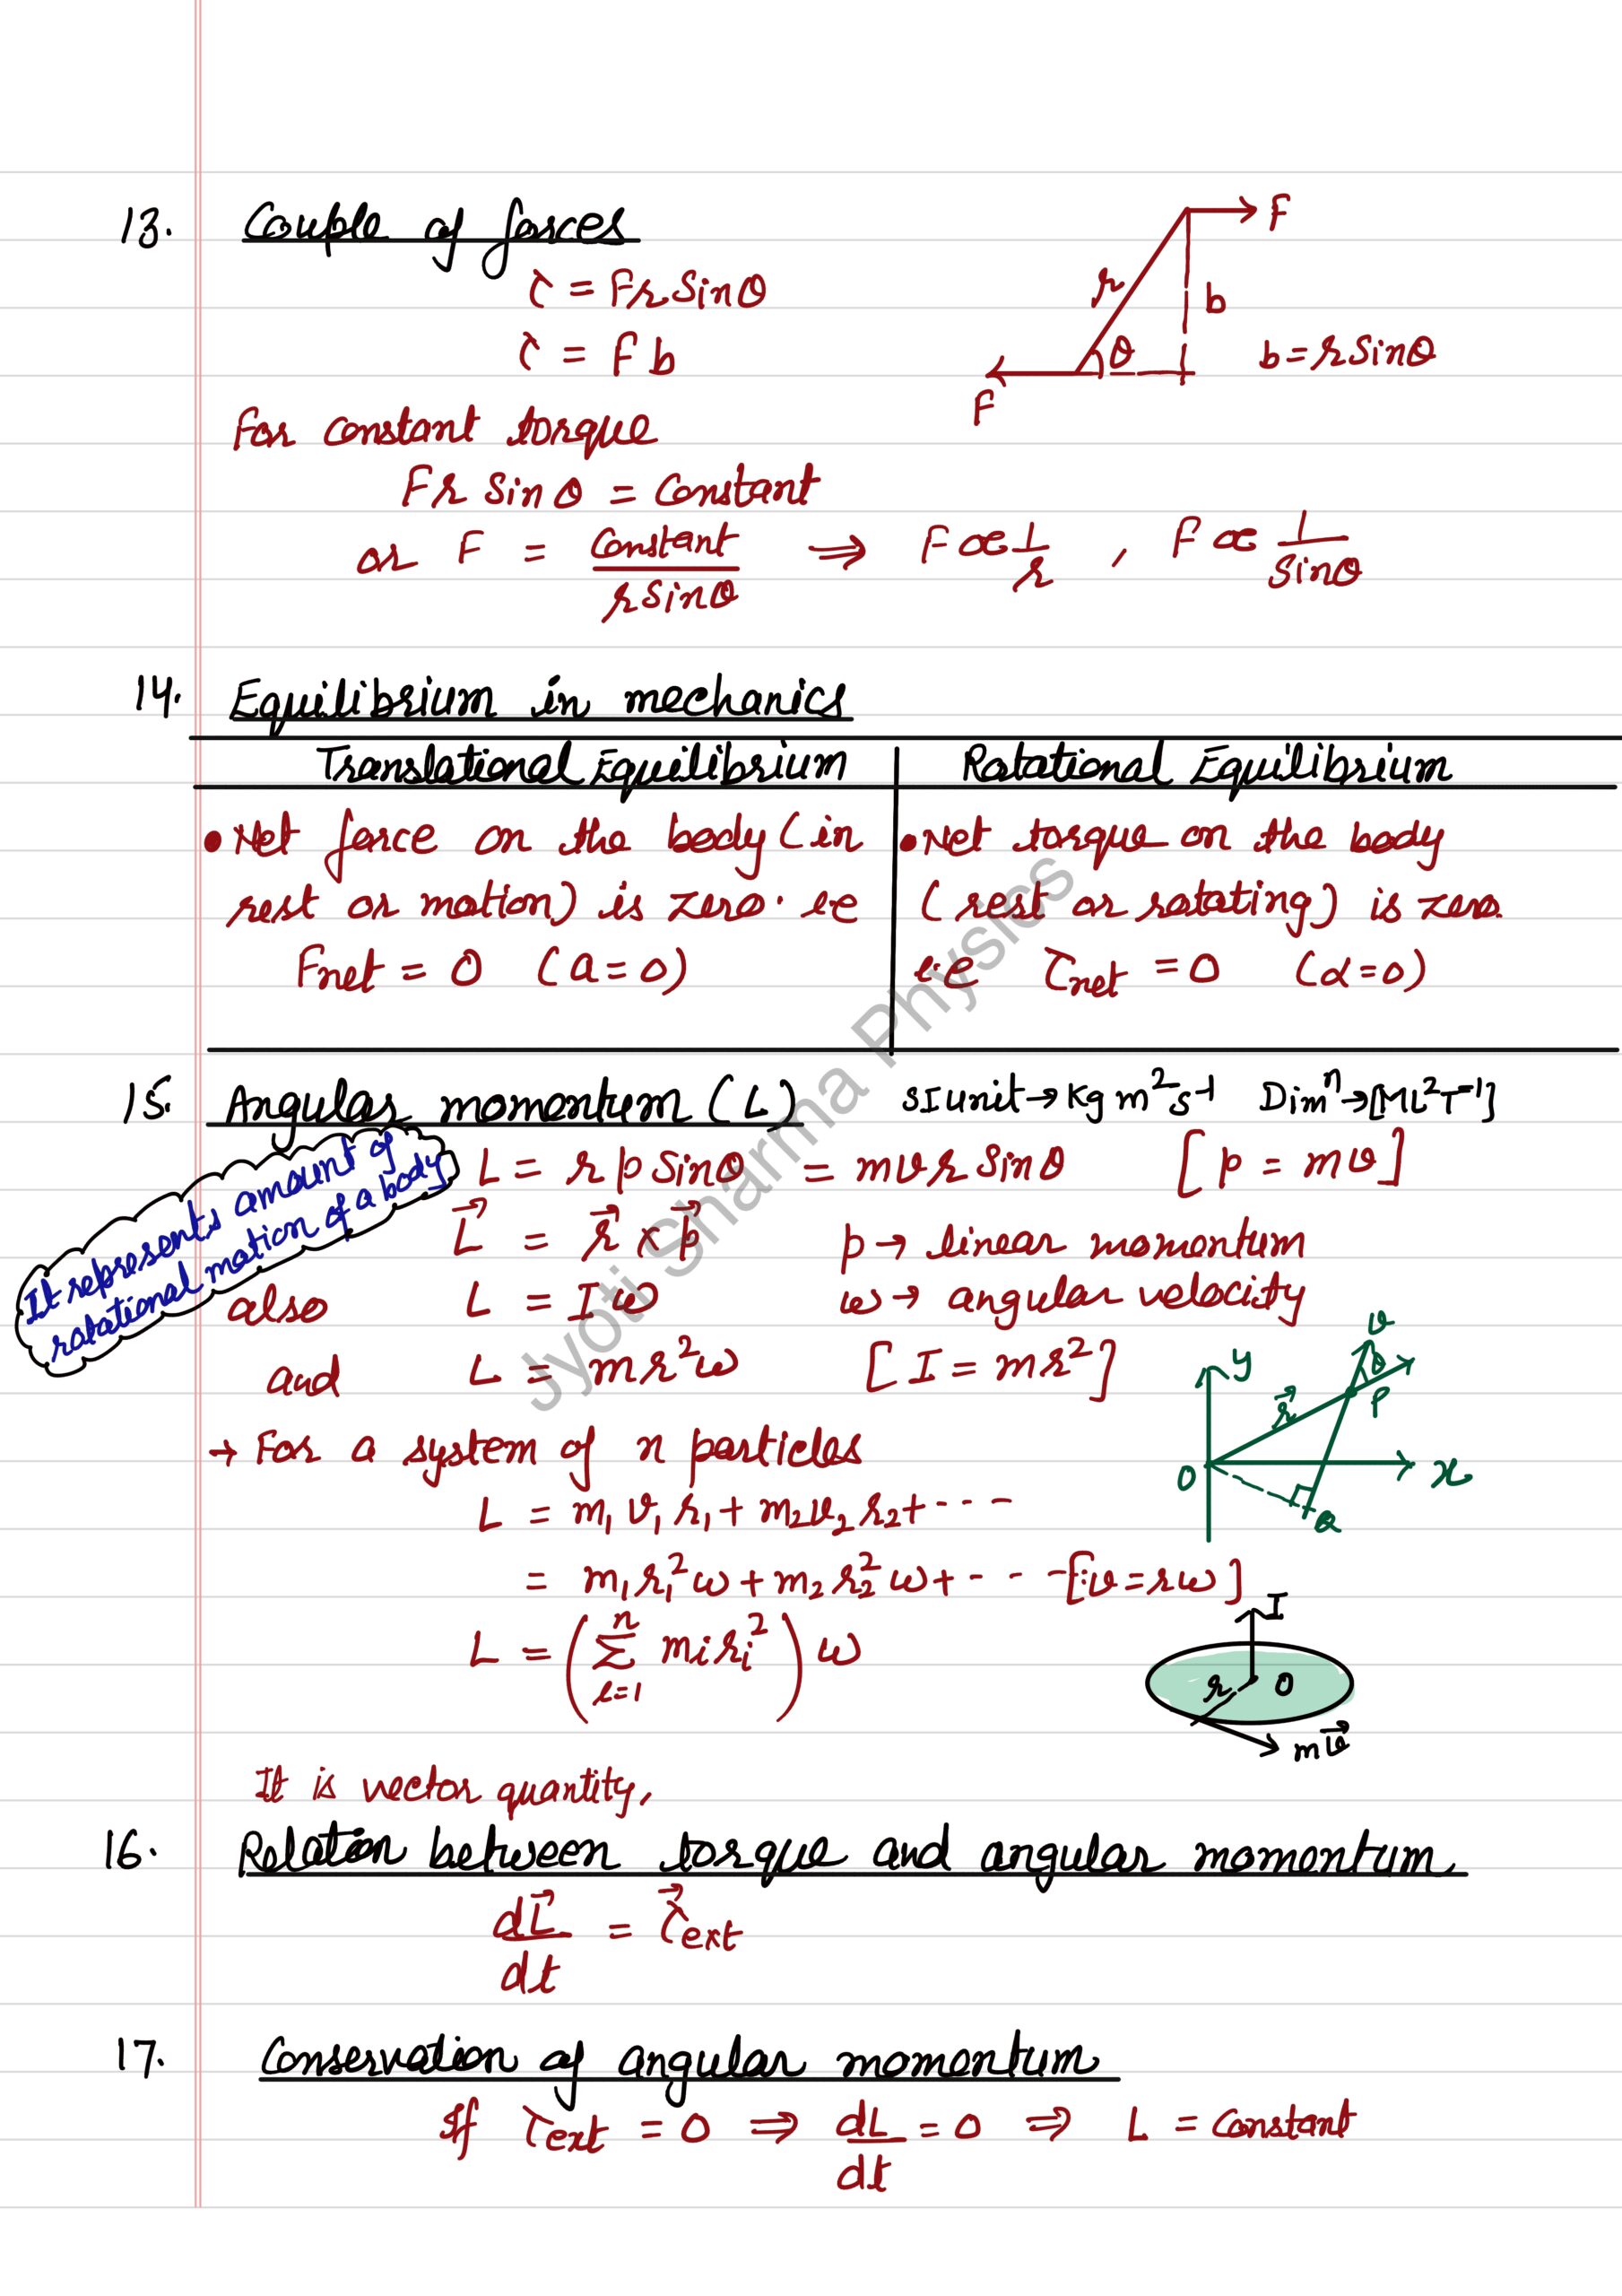 13. Couple of forces
τ = Fr Sinθ
τ = F b
F
r
b
θ
b = r Sinθ
F
For constant torque
Fr Sin θ = Constant
or F = Constant / r Sinθ ⇒ F ∝ 1/r , F ∝ 1/Sinθ
14. Equilibrium in mechanics
Translational Equilibrium
• Net force on the body (in
rest or motion) is zero. i.e
Fnet = 0 (a=0)
Rotational Equilibrium
• Net torque on the body
(rest or rotating) is zero.
i.e τnet = 0 (α=0)
15. Angular momentum (L) SI unit → Kg m²s⁻¹ Dimⁿ → [ML²T⁻¹]
It represents amount of
rotational motion of a body
L = r p Sinθ = mvr Sinθ [p = mv]
L⃗ = r⃗ × p⃗ p → linear momentum
also L = Iω ω → angular velocity
and L = mr²ω [I = mr²]
y
v
θ
P
r⃗
O
x
Q
→ For a system of n particles
L = m₁v₁r₁ + m₂v₂r₂ + ....
= m₁r₁²ω + m₂r₂²ω + - - - [∵ v = rω]
L = (∑ⁿᵢ₌₁ mᵢrᵢ²) ω
I
r
O
mv⃗
It is vector quantity,
16. Relation between torque and angular momentum
dL⃗/dt = τ⃗ext
17. Conservation of angular momentum
If τext = 0 ⇒ dL/dt = 0 ⇒ L = Constant
Jyoti Sharma Physics